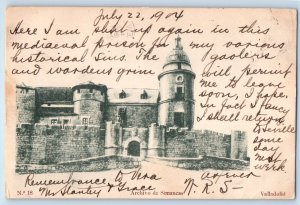 July 22, 1904
Here I am shut up again in this
mediaeval prison for my various
historical sins. The gaolers
and wardens grim
will permit
me to leave
soon, for
In fact I fancy
I shall
return to
Seville some
day next
week.
Remembrance to Vera
Mr. Stanley & Grace
W. R. S-
N.º 18
Archivo de Simancas
Valladolid